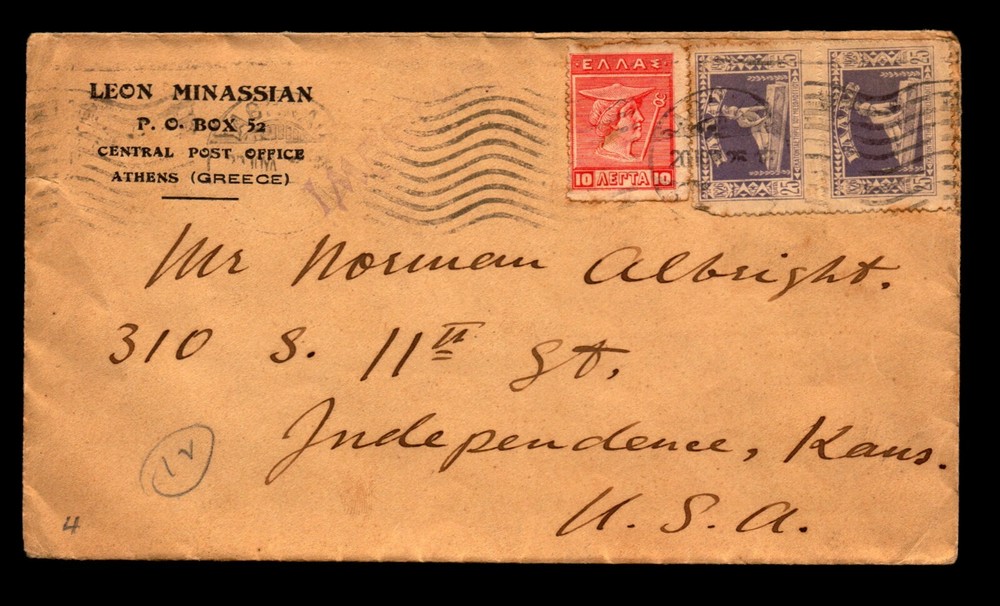 LEON MINASSIAN
P. O. BOX 52
CENTRAL POST OFFICE
ATHENS (GREECE)
ΕΛΛΑΣ
10 ΛΕΠΤΑ 10
ΕΛΛΑΣ 25 25
ΕΛΛΑΣ 25 25
Mr Norman Albright.
310 S. 11th St,
Independence, Kans.
U. S. A.
12
4